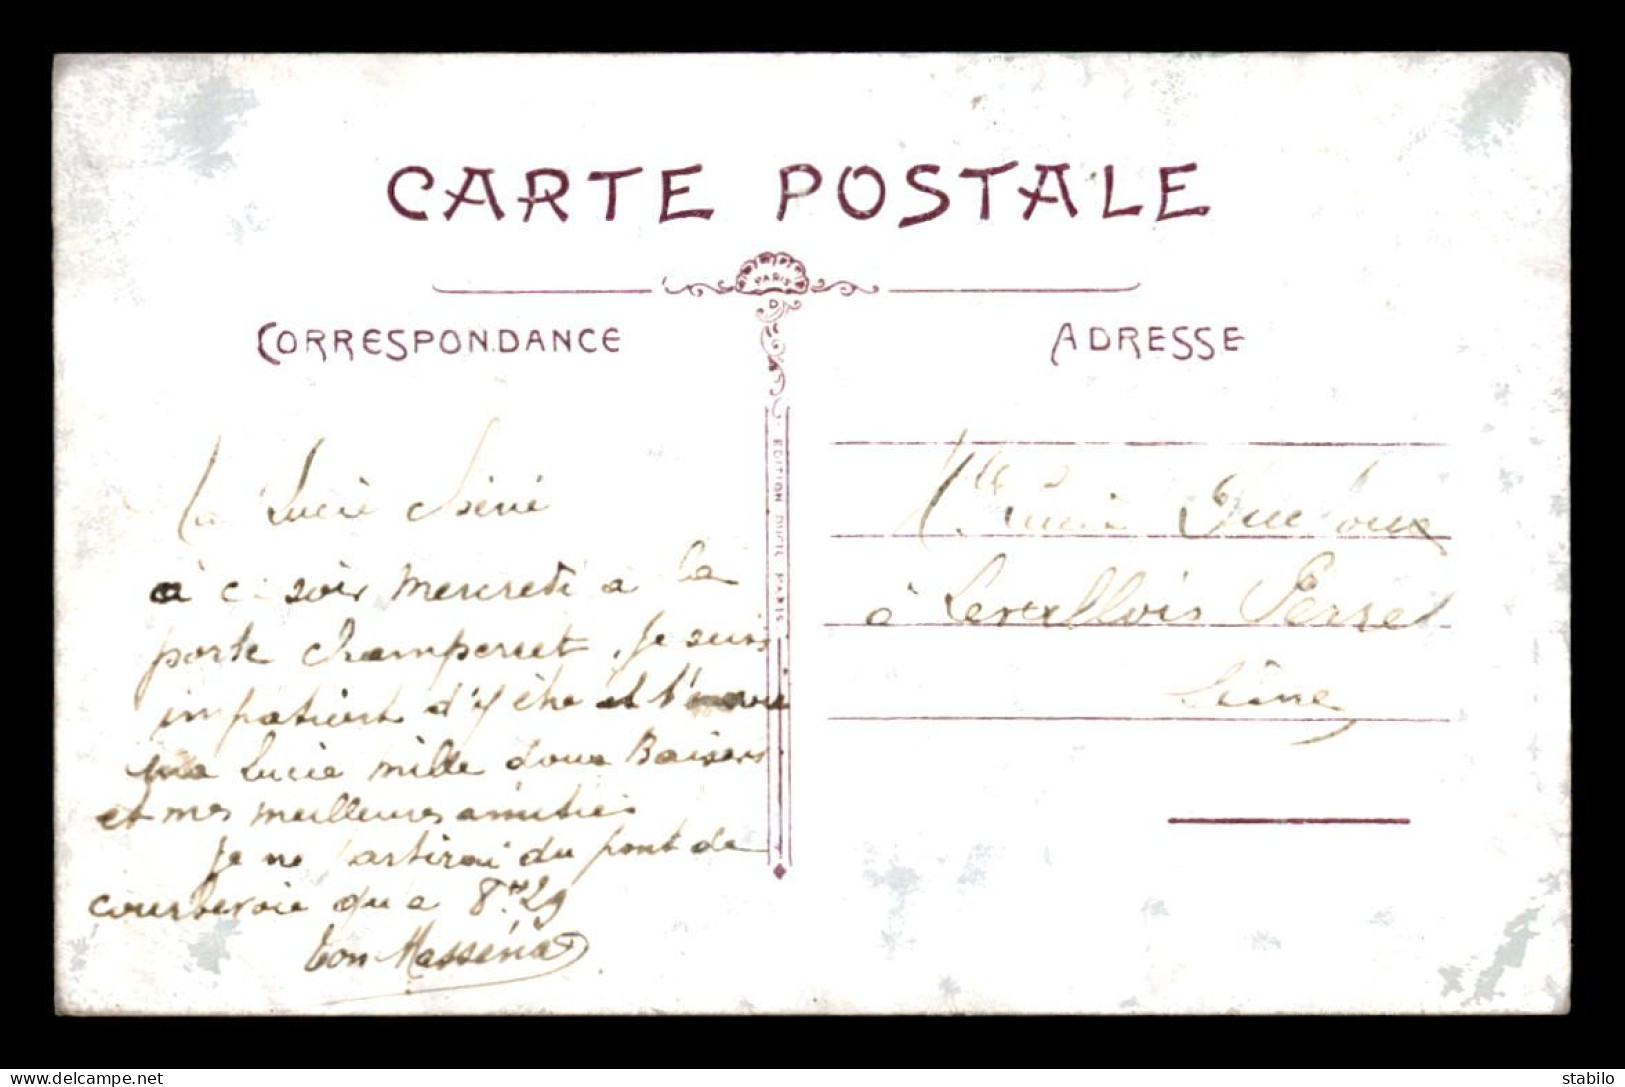 CARTE POSTALE
PARIS
D
CORRESPONDANCE
ADRESSE
EDITION PARIS
Ma Lucie chérie
à ce soir mercredi à la
porte champerret. Je suis
impatient d'y être et t'envoie
ma Lucie mille doux Baisers
et mes meilleures amitiés
Je ne partirai du pont de
courbevoie qu'a 8h29
ton Masséna
Mlle Lucie
à Levallois Perret
Seine
delcampe.net
stabilo